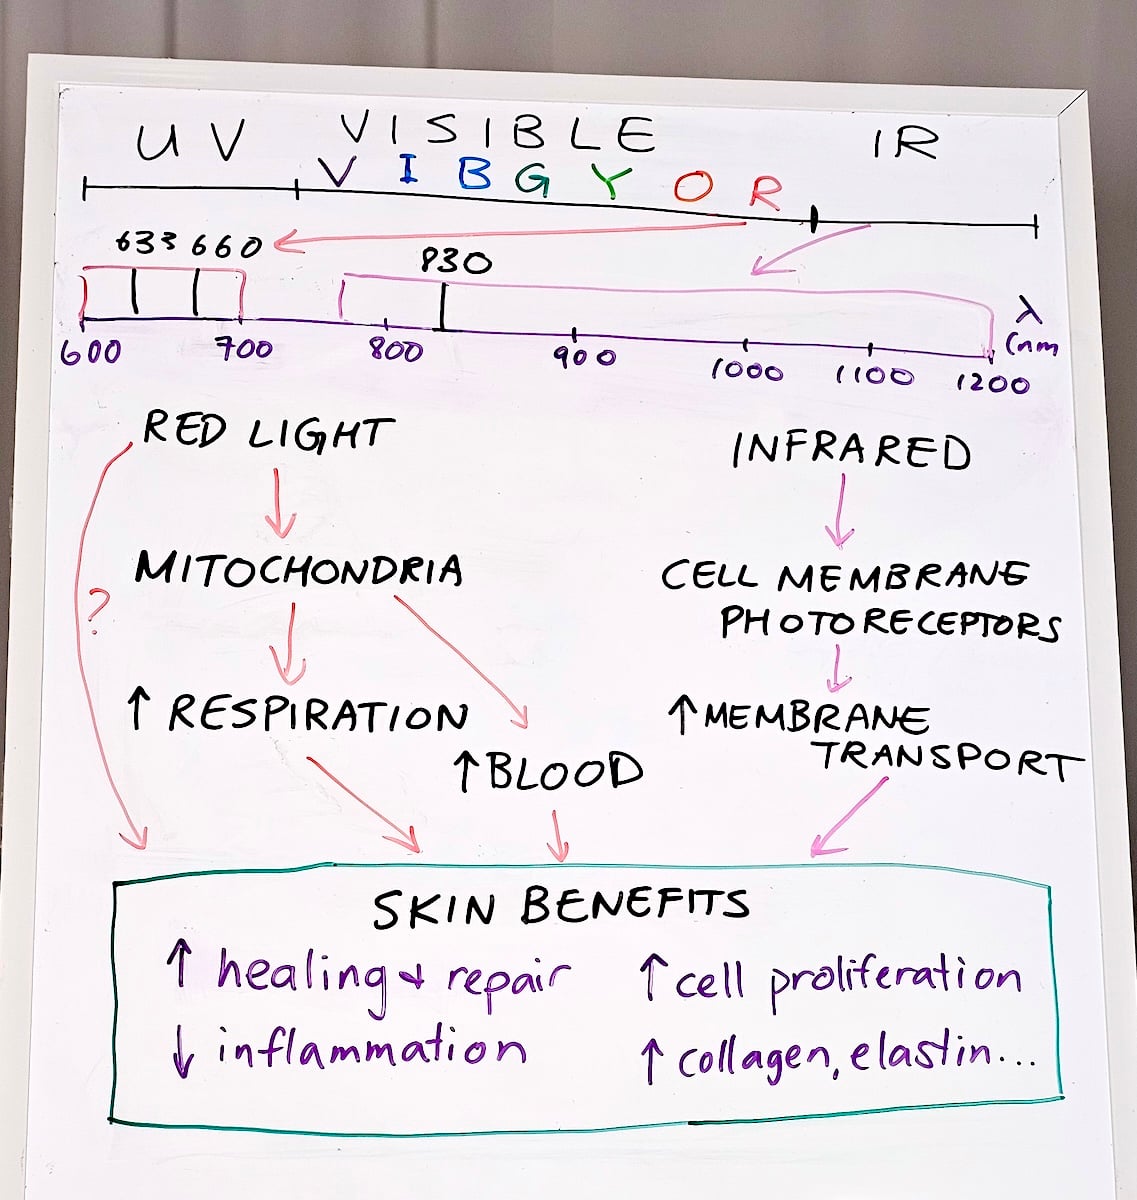 UV VISIBLE IR
V I B G Y O R
633 660
830
λ
(nm
600 700 800 900 1000 1100 1200
RED LIGHT
INFRARED
MITOCHONDRIA
CELL MEMBRANE
PHOTORECEPTORS
?
↑ RESPIRATION
↑ MEMBRANE
TRANSPORT
↑ BLOOD
SKIN BENEFITS
↑ healing + repair
↑ cell proliferation
↓ inflammation
↑ collagen, elastin...